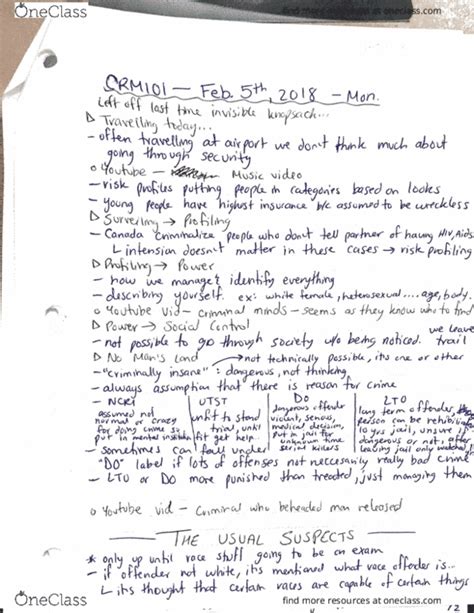 OneClass
find more resources at oneclass.com
CRM101 — Feb. 5th, 2018 - Mon.
Left off last time invisible knapsack...
Travelling today...
- often travelling at airport we don't think much about
going through security
o Youtube - Music video
- risk profiles putting people in categories based on looks
- young people have highest insurance b/c assumed to be wreckless
Surveiling → Profiling
- Canada criminalize people who don't tell partner of having HIV, Aids
L intension doesn't matter in these cases → risk profiling
Profiling → Power
- how we manage + identify everything
- describing yourself. ex: white female, heterosexual.... age, body.
o Youtube vid - criminal minds - seems as they know who to find
Power → Social Control
we leave
- not possible to go through society w/o being noticed. trail
No Man's Land → not technically possible, its one or other
- "criminally insane": dangerous, not thinking
- always assumption that there is reason for crime
- NCRT UTST DO LTO
assumed not normal or crazy for doing crime so put in mental
unfit to stand trial, until fit get help.
dangerous offender violent, serious, medical decision, put in jail for unknown time serial killers
long term offender, person can be 10 yrs jail, unsure if dangerous or not, after leaving jail only
- sometimes can fall under
"DO" label if lots of offenses not necessarily really bad crime
- LTO or DO more punished than treated, just managing them
o Youtube vid - Criminal who beheaded man released
— THE USUAL SUSPECTS —
* only up until race stuff going to be on exam
- if offender not white, its mentioned what race offender is...
L its thought that certain races are capable of certain things
OneClass
find more resources at oneclass.com